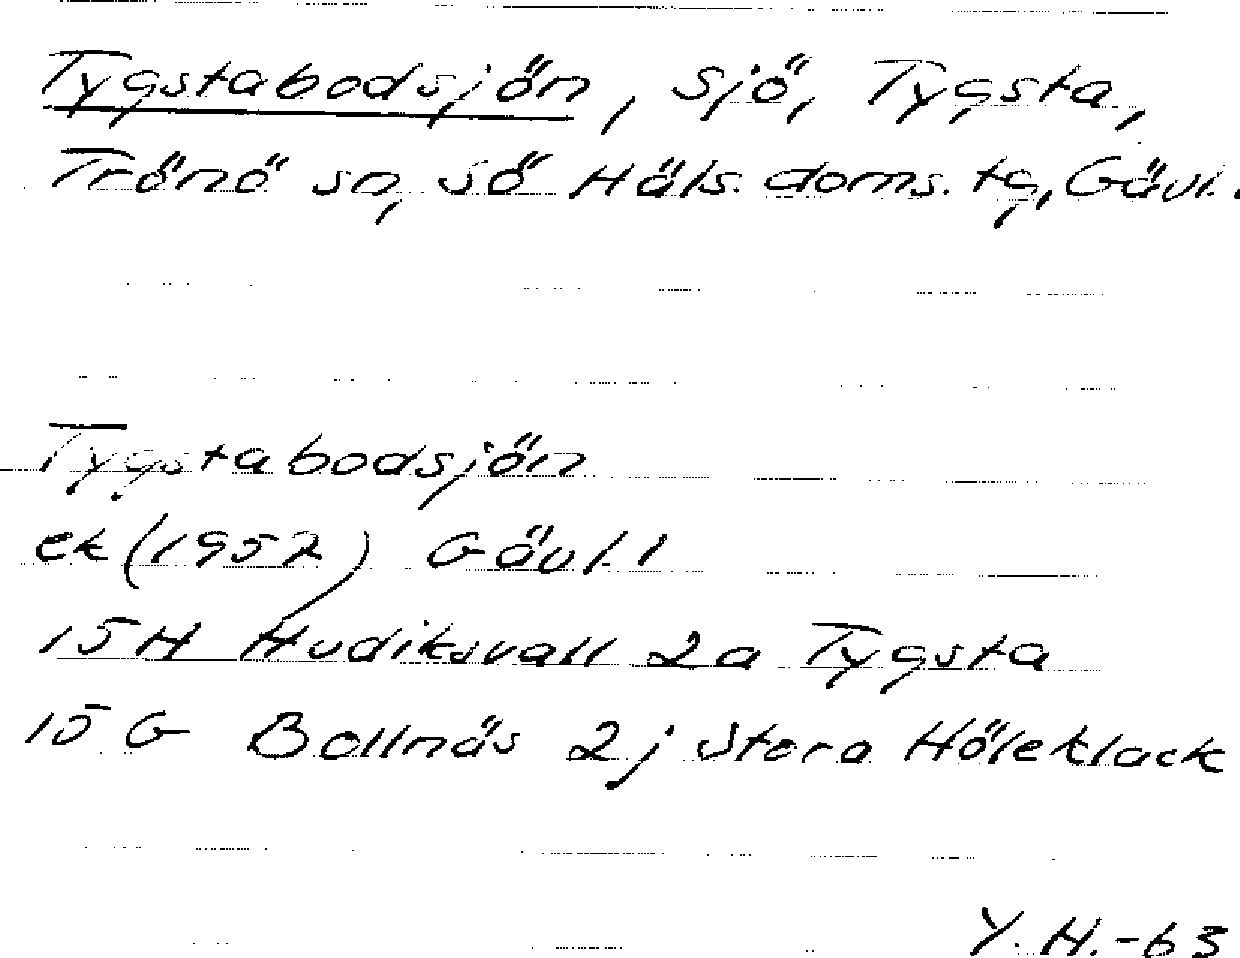 Tygstabodsjön, sjö, Tygsta,
Trönö sn, sö Häls. doms. tg, Gävl.
Tygstabodsjön
ek (1952) Gävl. l
15 H Hudiksvall 2a Tygsta
15 G Bollnäs 2j Stora Höleklack
Y. H. -63